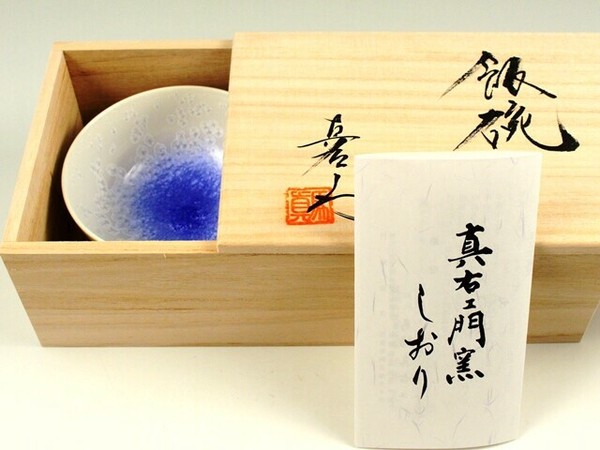 飯碗
喜人
真右エ門窯
しおり